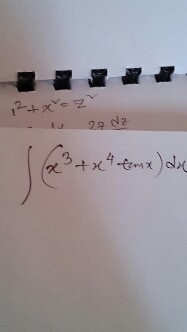 1² + x² = z²
2z dz
∫(x³ + x⁴ tanx) dx